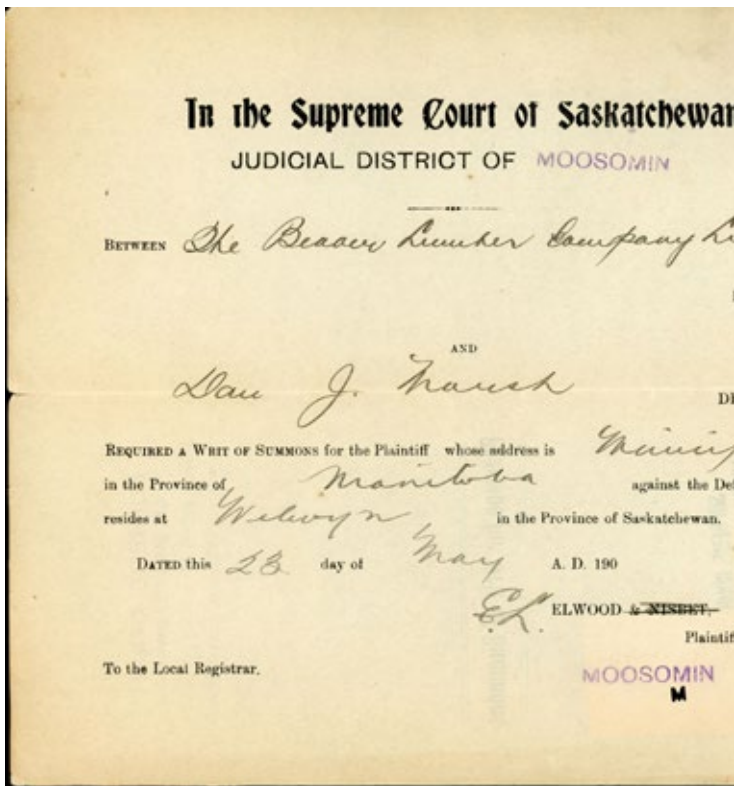 In the Supreme Court of Saskatchewan
JUDICIAL DISTRICT OF MOOSOMIN
BETWEEN The Beaver Lumber Company
AND
Dan J. Marsh
REQUIRED A WRIT OF SUMMONS for the Plaintiff whose address is
in the Province of Manitoba against the
resides at Welwyn in the Province of Saskatchewan.
DATED this 23 day of May A. D. 190
E.L. ELWOOD & NISBET,
Plaintif
To the Local Registrar.
MOOSOMIN
M